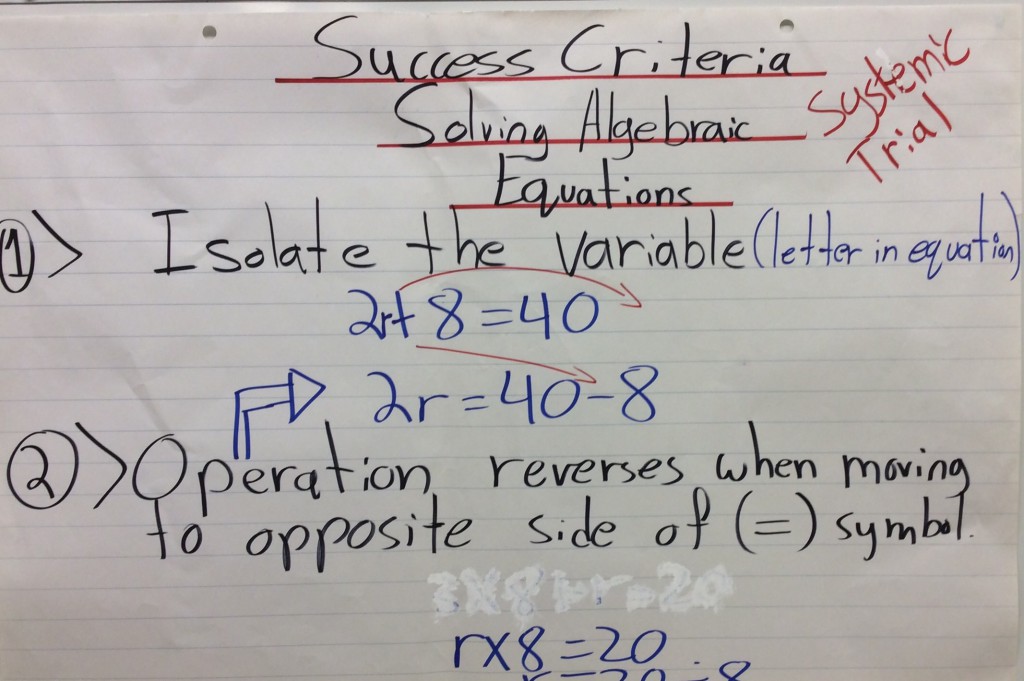 Success Criteria
Solving Algebraic
Equations
Systemic
Trial
1> Isolate the variable (letter in equation)
2r+8=40
2r=40-8
2> Operation reverses when moving
to opposite side of (=) symbol.
rx8=20